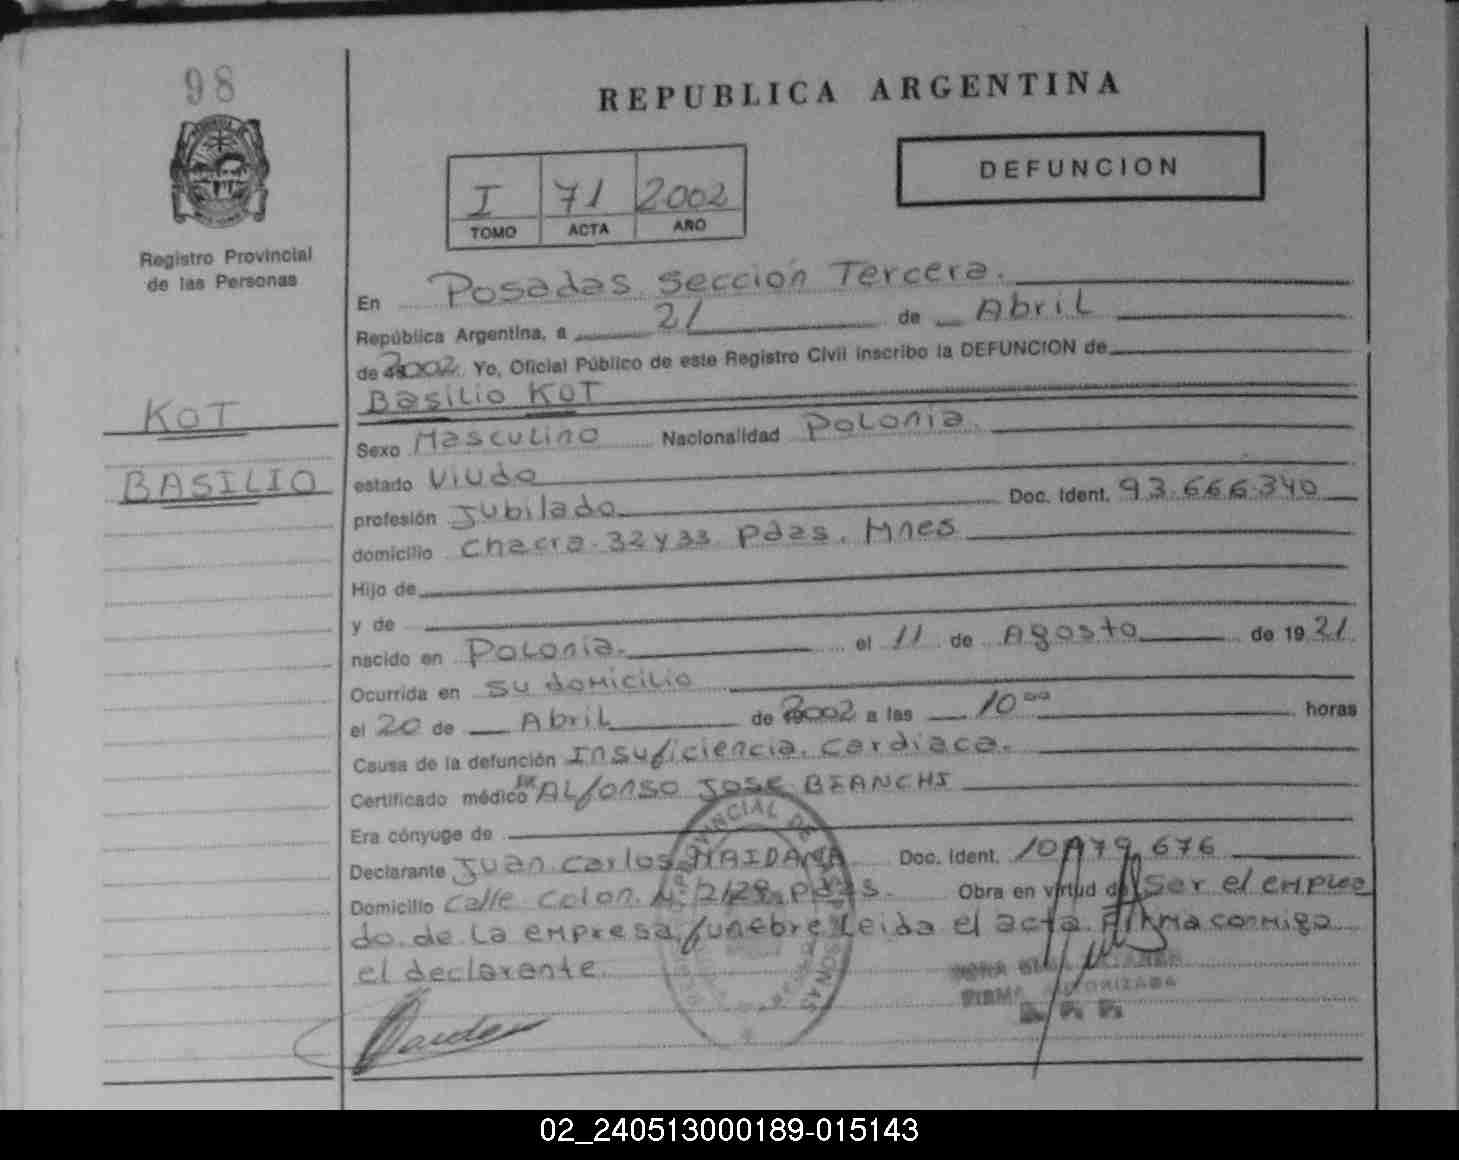 98
REPUBLICA ARGENTINA
DEFUNCION
I 71 2002
TOMO ACTA AÑO
Registro Provincial
de las Personas
En Posadas Sección Tercera.
República Argentina, a 21 de Abril
de 2002. Yo, Oficial Público de este Registro Civil inscribo la DEFUNCION de
Basilio KOT
KOT
BASILIO
Sexo Masculino Nacionalidad Polonia.
estado Viudo
profesión Jubilado Doc. Ident. 93.666.340
domicilio Chacra. 32 y 33 Pdas. Mnes
Hijo de
y de
nacido en Polonia. el 11 de Agosto de 1921
Ocurrida en su domicilio
el 20 de Abril de 2002 a las 10 00 horas
Causa de la defunción Insuficiencia. Cardiaca.
Certificado médico Alfonso Jose BIANCHI
Era cónyuge de
Declarante Juan Carlos MAIDANA Doc. Ident. 10.479.676
Domicilio Calle Colon. N. 2128 Pdas. Obra en virtud de Ser el emplea
do. de la empresa funebre Leida el acta. Firma conmigo
el declarante.
FIRMA AUTORIZADA
02_240513000189-015143